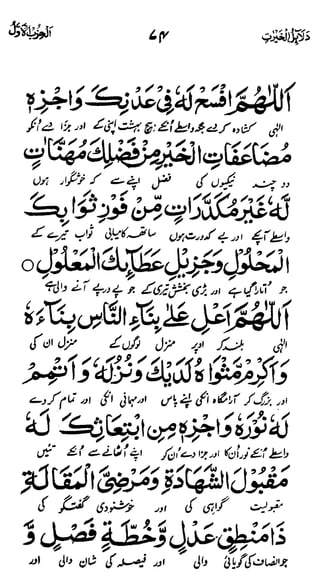 دلائل الخیرات ۷۴ الحزب الاول
اَللّٰهُمَّ افْسَحْ لَهٗ فِيْ عَدْنِكَ وَاجْزِهٖ
الٰہی کشادہ کر جگہ واسطے اُنکے بیچ بہشت اپنی کے اور جزا دے اُنکو
مُضَاعَفَاتِ الْخَيْرِ مِنْ فَضْلِكَ مُهَنَّاتٍ
دو چند نیکیوں کی فضل اپنے سے کہ خوشگوار ہوں
لَهٗ غَيْرَ مُكَدَّرَاتٍ مِّنْ فَوْزِ ثَوَابِكَ
واسطے اُنکے اور بے کدورت ہوں ساتھ کامیابی ثواب تیرے کے
الْمَحْلُوْلِ وَجَزِيْلِ عَطَآئِكَ الْمَعْلُوْلِ ○
جو اُتارا گیا ہے اور بڑی بخشش تیری کے جو پے درپے آنے والی ہے
اَللّٰهُمَّ اَعْلِ عَلٰى بِنَآءِ النَّاسِ بِنَآءَهٗ
الٰہی بلند کر اوپر منزل لوگوں کے منزل ان کی
وَاَكْرِمْ مَثْوَاهُ لَدَيْكَ وَنُزُلَهٗ وَاَتْمِمْ
اور بزرگ کر آرامگاہ انکی اپنے پاس اور مہمانی انکی اور تمام کر دے
لَهٗ نُوْرَهٗ وَاجْزِهٖ مِنِ ابْتِعَاثِكَ لَهٗ
واسطے اُنکے نور اُن کا اور جزا دے اُن کو اپنے اُٹھانے سے اُنکے تئیں
مَقْبُوْلَ الشَّهَادَةِ وَمَرْضِيَّ الْمَقَالَةِ
مقبولیت گواہی کی اور خوشنودی گفتگو کی
ذَا مَنْطِقٍ عَدْلٍ وَّخُطَّةٍ فَصْلٍ وَّ
جو انصاف کی گویائی والی اور فیصلہ کی شان والی اور